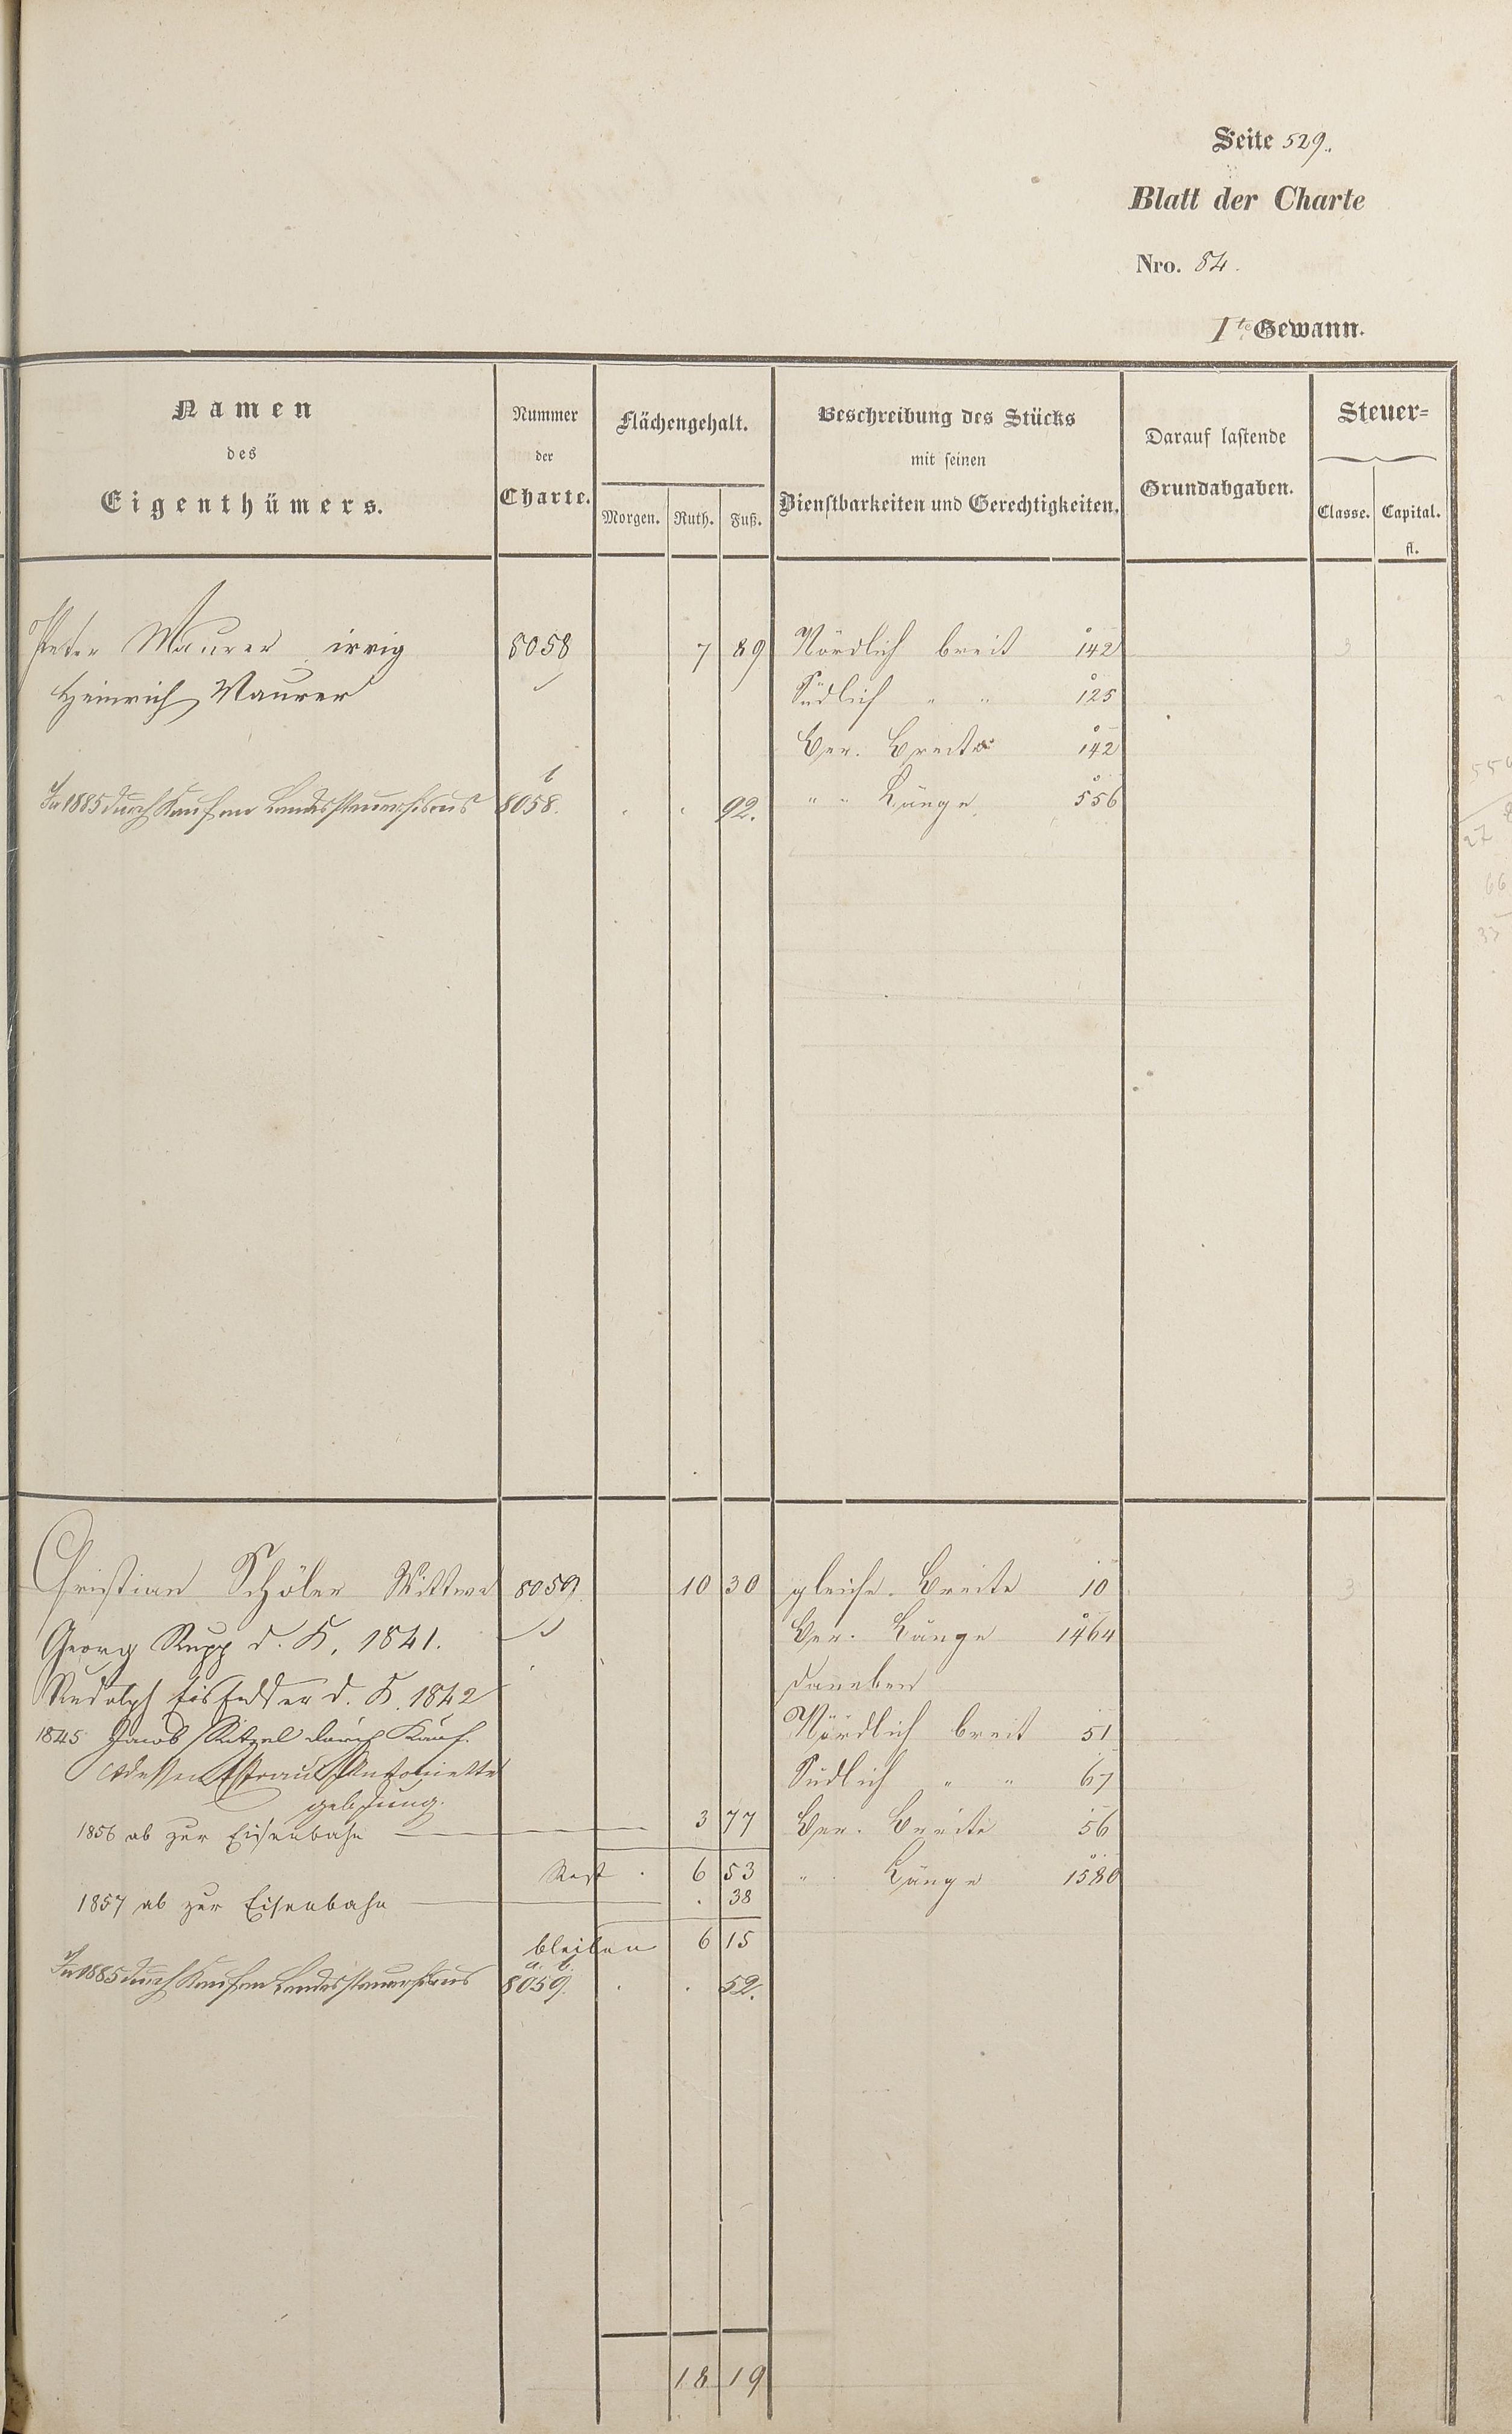 Seite 529.
Blatt der Charte
Nro. 84.
1te Gewann.
Namen
des
Eigenthümers.
Nummer
der
Charte.
Flächengehalt.
Morgen. Ruth. Fuß.
Beschreibung des Stücks
mit seinen
Dienstbarkeiten und Gerechtigkeiten.
Darauf lastende
Grundabgaben.
Steuer-
Classe. Capital.
fl.
Peter Maurer irrig 8058 7 89 Nördlich breit 142 3
Heinrich Maurer Südlich " " 125
Ver. Breite 142
In 1885 durch Kauf an Landessteuerfiskus 8058. b . . 92. " " Länge 556
Christian Schöler Wittwe 8059 10 30 gleiche Breite 10 3
Georg Rupp d. K. 1841. Ver. Länge 1464
Rudolph d. K. 1842 daneben
1845 Jacob Ritzel durch Kauf. Nördlich breit 51
dessen Frau Antoinette Südlich " " 67
geb.
1856 ab zur Eisenbahn 3 77 Ver. Breite 56
Rest . 6 53 " Länge 1580
1857 ab zur Eisenbahn . 38
bleiben 6 15
In 1885 durch Kauf an Landessteuerfiskus 8059. a. b. . . 52.
18 19